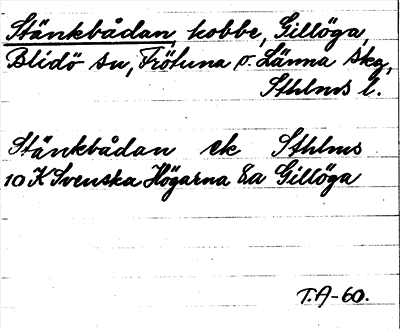 Stänkbådan, kobbe, Gillöga,
Blidö sn, Frötuna o. Länna skg,
Sthlms l.
Stänkbådan ek Sthlms
10 K Svenska Högarna Ea Gillöga
T.A-60.